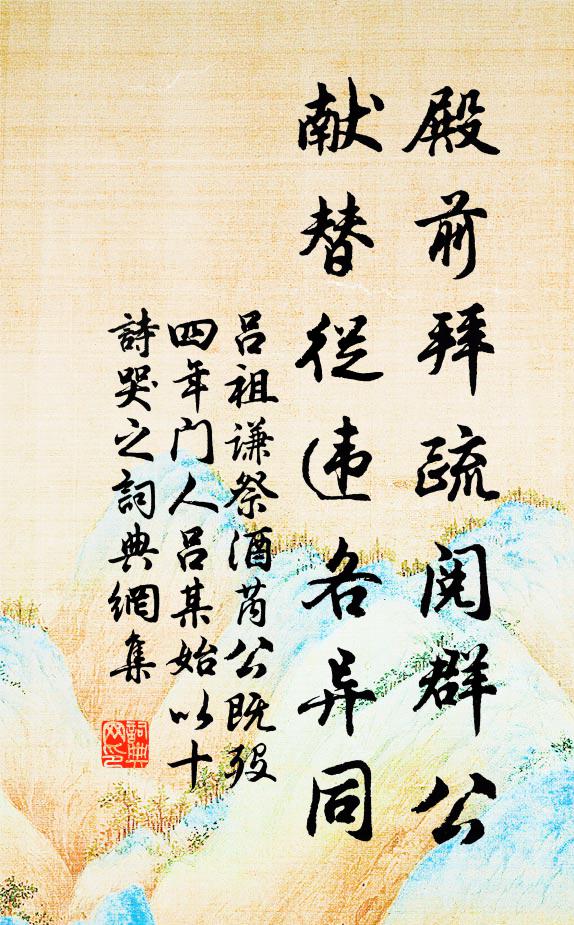 殿前拜疏阅群公
献替從违各异同
吕祖谦祭酒芮公既殁
四年门人吕某始以十
詩哭之詞典網集
詞典
网印